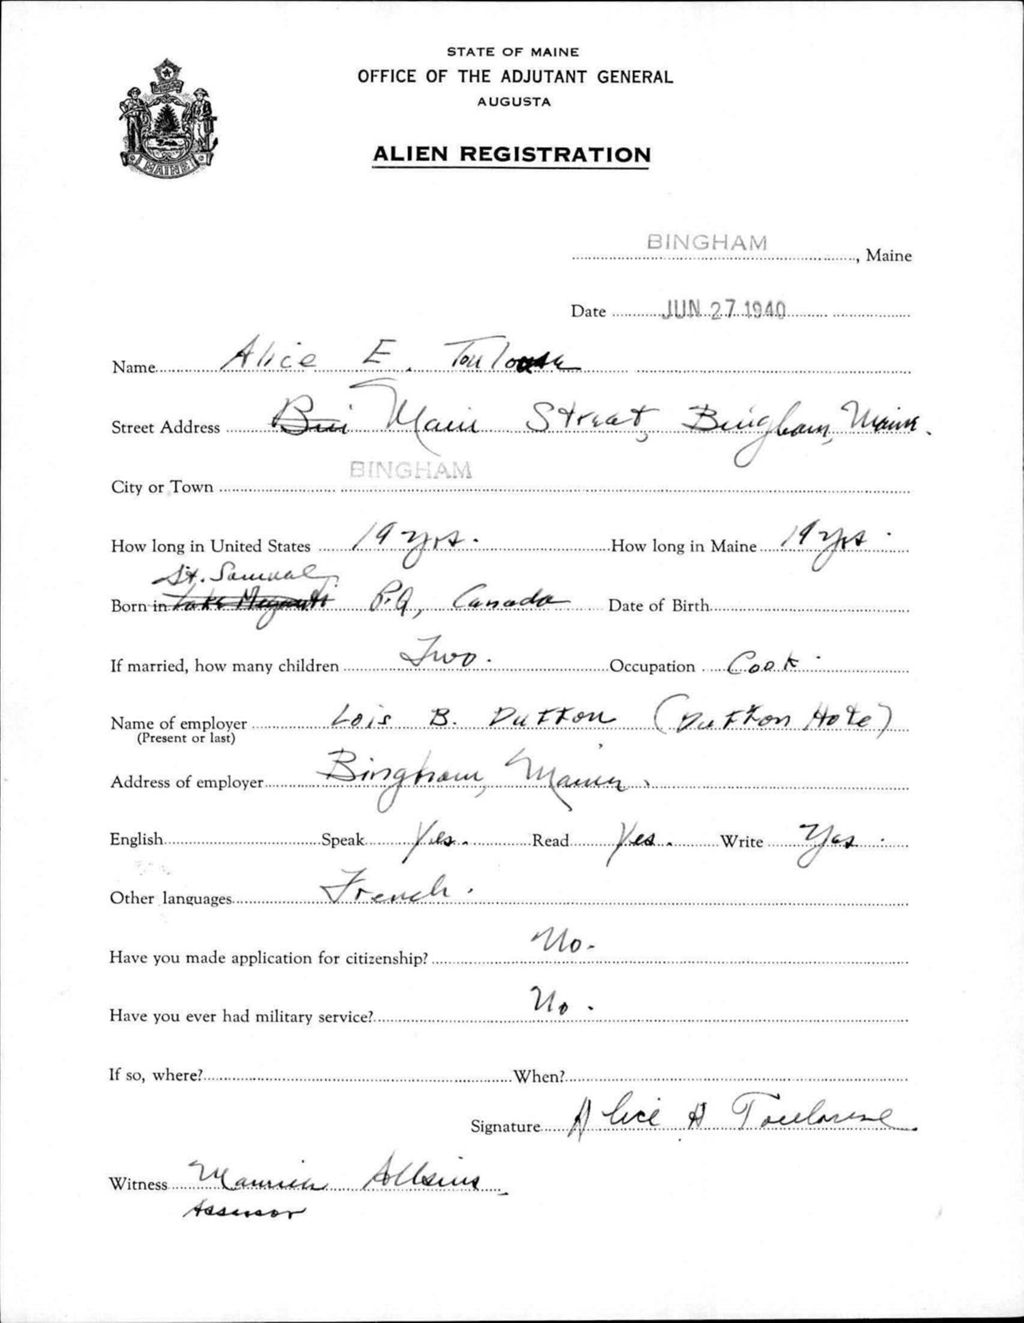 STATE OF MAINE
OFFICE OF THE ADJUTANT GENERAL
AUGUSTA
ALIEN REGISTRATION
MAINE
BINGHAM, Maine
Date JUN 27 1940
Name Alice E. Toulouse
Street Address Main Street, Bingham, Maine.
City or Town BINGHAM
How long in United States 19 yrs. How long in Maine 19 yrs.
St. Samuel,
Born in Lake Megantic P.Q, Canada Date of Birth
If married, how many children Two. Occupation Cook.
Name of employer Lois B. Dutton (Dutton Hote)
(Present or last)
Address of employer Bingham, Maine.
English Speak Yes. Read Yes. Write Yes.
Other languages French.
Have you made application for citizenship? No.
Have you ever had military service? No.
If so, where? When?
Signature Alice Toulouse
Witness
Assessor